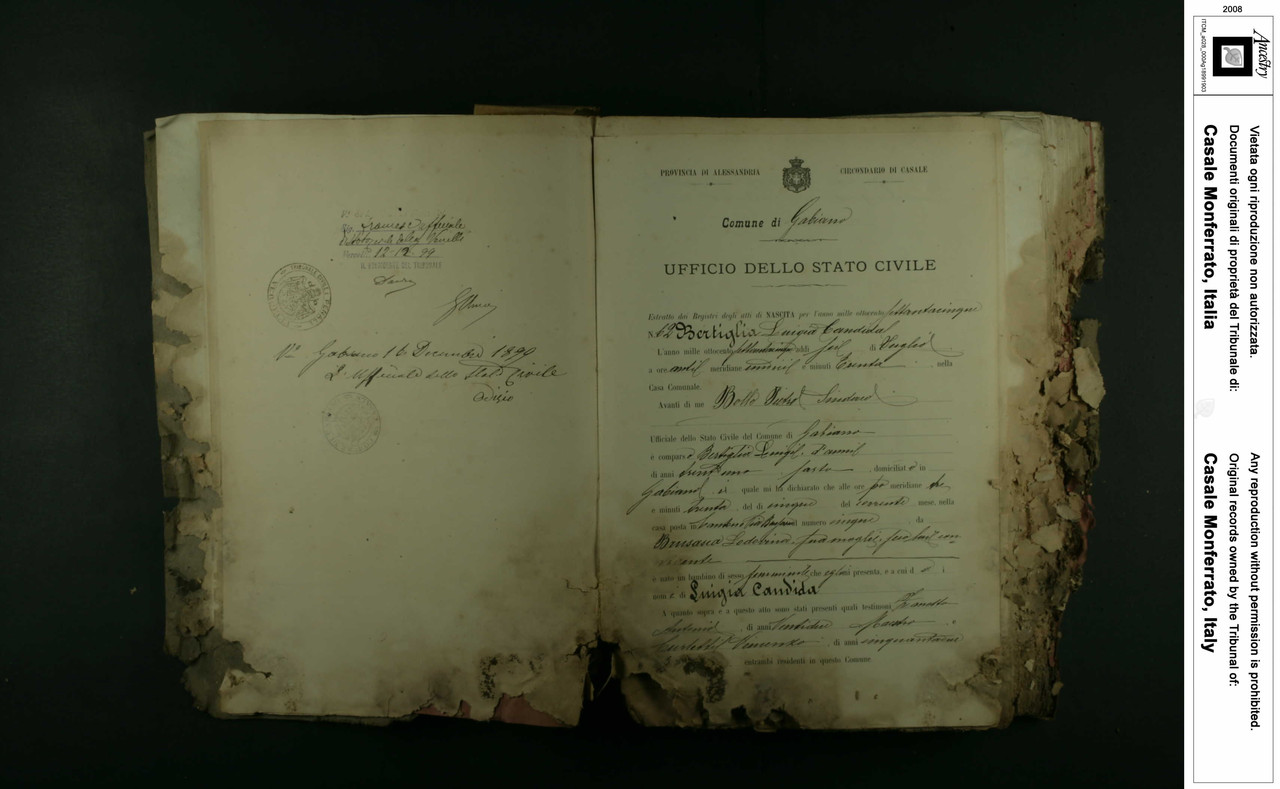 Francesco Ufficiale
12.12.99
IL CANCELLIERE DEL TRIBUNALE
Vo Gabiano 16 Dicembre 1899
L'Ufficiale dello Stato Civile
PROVINCIA DI ALESSANDRIA
CIRCONDARIO DI CASALE
Comune di Gabiano
UFFICIO DELLO STATO CIVILE
Estratto dai Registri degli atti di NASCITA per l'anno mille ottocento settantacinque
N. 62 Bertiglia Luigia Candida
L'anno mille ottocento settantacinque addì sei di Luglio
a ore meridiane e minuti trenta nella
Casa Comunale.
Avanti di me Botto Pietro Sindaco
Ufficiale dello Stato Civile del Comune di Gabiano
è comparso Bertiglia Luigi d'anni
di anni trentuno sarto domiciliato in
Gabiano il quale mi ha dichiarato che alle ore po meridiane tre
e minuti trenta del dì cinque del corrente mese, nella
casa posta in numero cinque da
Brusasca sua moglie seco lui con-
vivente
è nato un bambino di sesso femminino che egli mi presenta, e a cui dà i
nomi di Luigia Candida
A quanto sopra e a questo atto sono stati presenti quali testimoni
Antonio di anni ventidue Maestro e
Vincenzo di anni
entrambi residenti in questo Comune
2008
Ancestry
Vietata ogni riproduzione non autorizzata.
Documenti originali di proprietà del Tribunale di:
Casale Monferrato, Italia
Any reproduction without permission is prohibited.
Original records owned by the Tribunal of:
Casale Monferrato, Italy